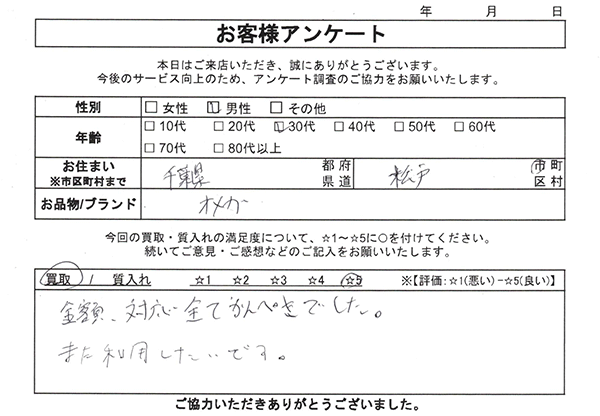 年　月　日
お客様アンケート
本日はご来店いただき、誠にありがとうございます。
今後のサービス向上のため、アンケート調査のご協力をお願いいたします。
性別 □ 女性 □ 男性 □ その他
年齢 □ 10代 □ 20代 □ 30代 □ 40代 □ 50代 □ 60代
□ 70代 □ 80代以上
お住まい ※市区町村まで 千葉県 都府県道 松戸 市町区村
お品物/ブランド オメガ
今回の買取・質入れの満足度について、☆1～☆5に○を付けてください。
続いてご意見・ご感想などのご記入をお願いいたします。
買取 / 質入れ ☆1 ☆2 ☆3 ☆4 ☆5 ※【評価:☆1(悪い)-☆5(良い)】
金額、対応全てかんぺきでした。
また利用したいです。
ご協力いただきありがとうございました。